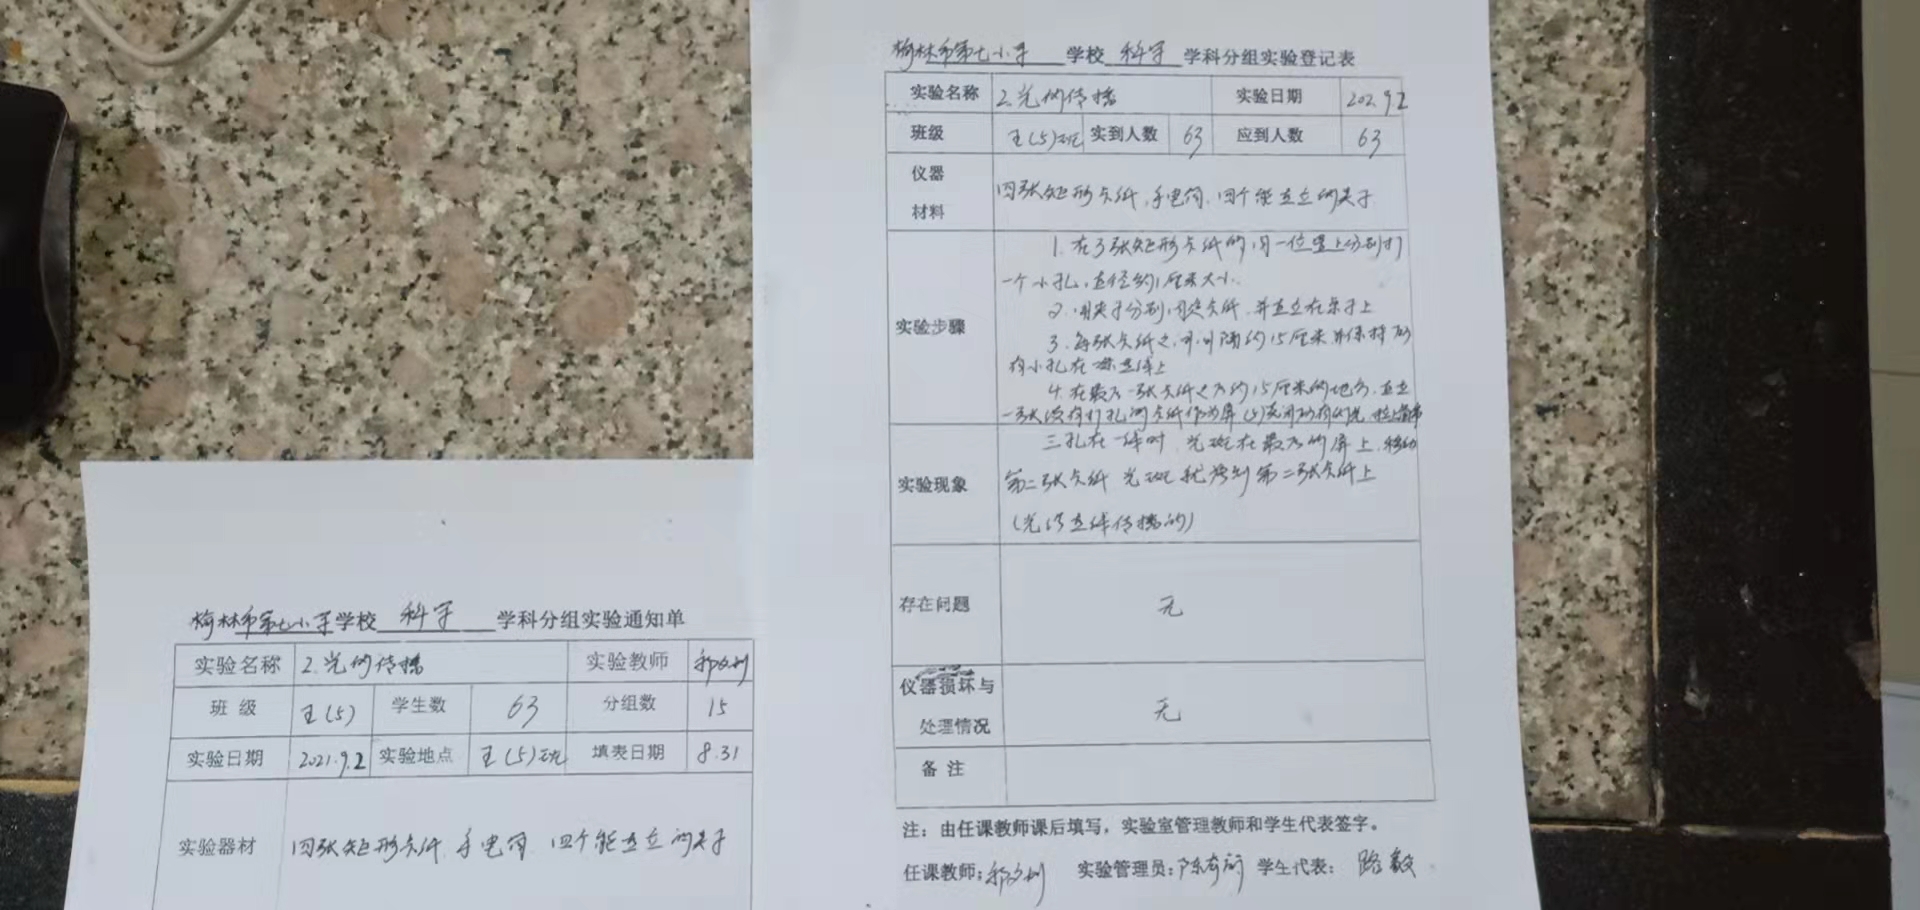 榆林市第七小学 学校 科学 学科分组实验登记表
实验名称 2.光的传播 实验日期 202.9.2
班级 五(5)班 实到人数 63 应到人数 63
仪器
材料
四张矩形卡纸、手电筒、四个能直立的夹子
实验步骤
1.在3张矩形卡纸的同一位置上分别打
一个小孔,直径约1厘米大小.
2.用夹子分别固定卡纸,并直立在桌子上
3.每张卡纸之间间隔约15厘米并保持所
有小孔在一条直线上
4.在最后一张卡纸之后约15厘米的地方,直立
一张没有打孔的卡纸作为屏(5)关闭所有灯光,拉上窗帘
实验现象
三孔在一线时 光斑在最后的屏上,移动
第二张卡纸 光斑就落到第二张卡纸上
(光沿直线传播的)
存在问题 无
仪器损坏与
处理情况
无
备注
注:由任课教师课后填写,实验室管理教师和学生代表签字。
任课教师: 实验管理员: 学生代表: 路毅
榆林市第七小学 学校 科学 学科分组实验通知单
实验名称 2.光的传播 实验教师
班级 五(5) 学生数 63 分组数 15
实验日期 2021.9.2 实验地点 五(5)班 填表日期 8.31
实验器材 四张矩形卡纸、手电筒、四个能直立的夹子